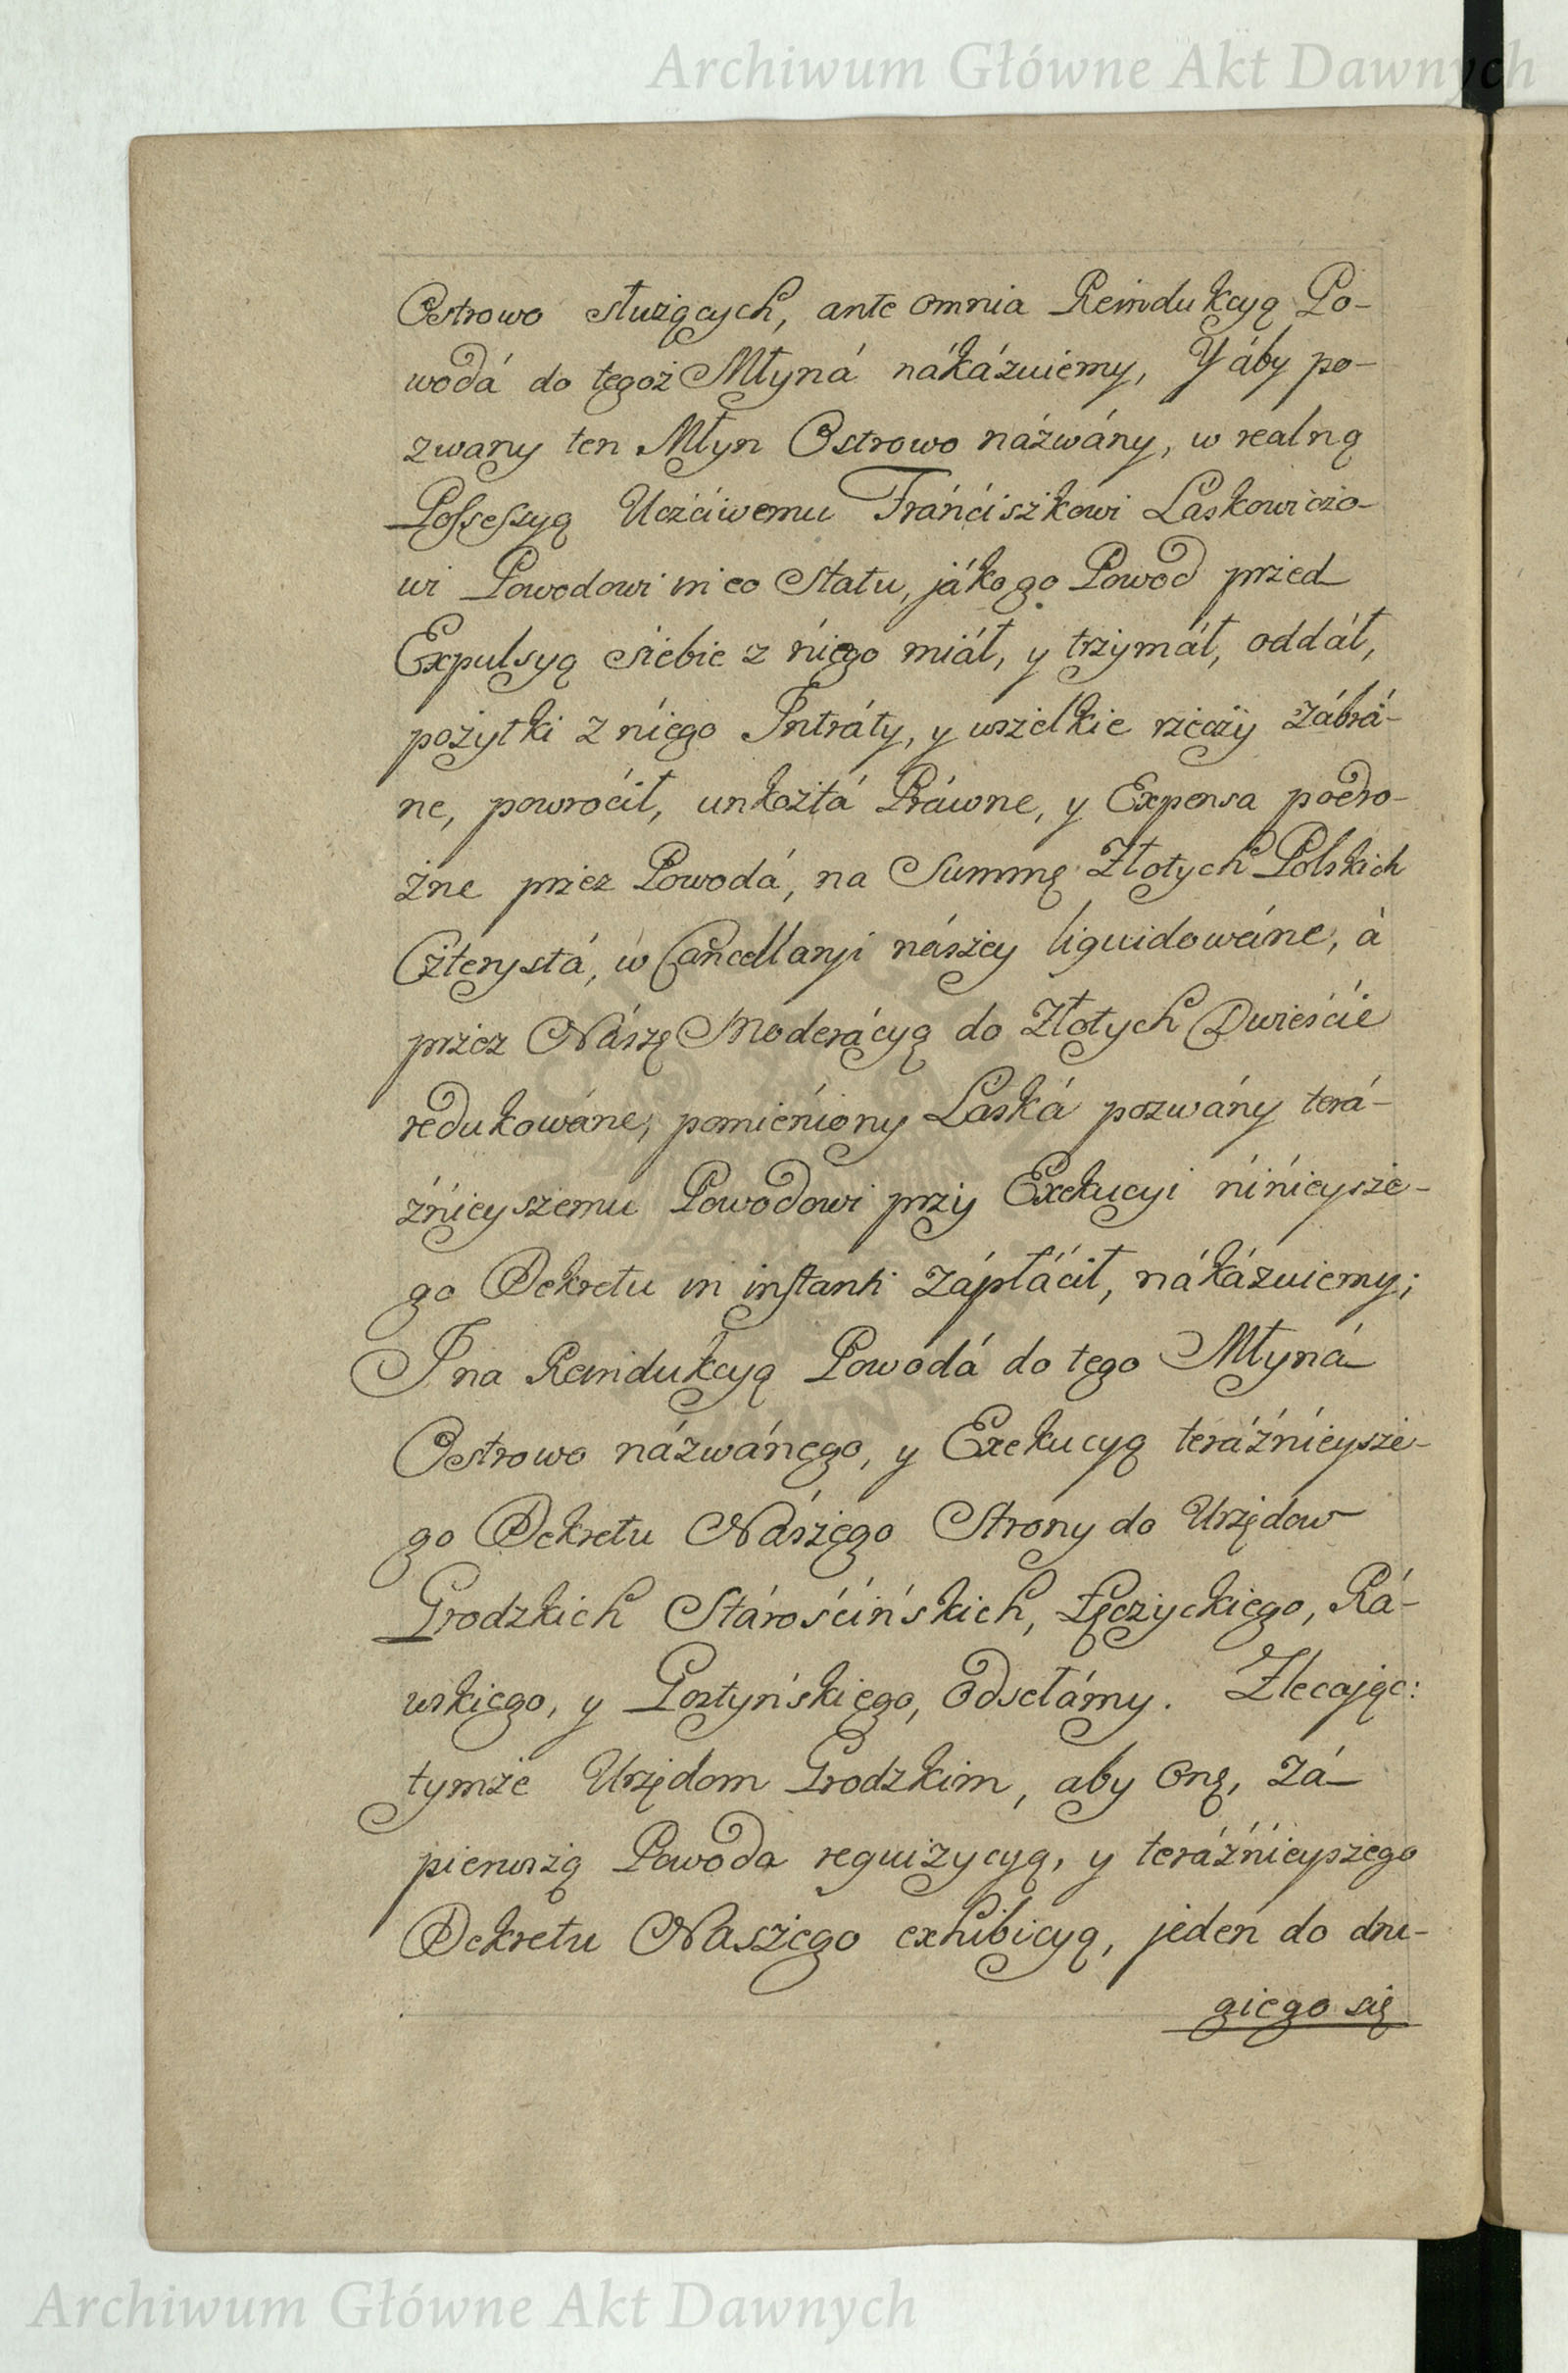 Archiwum Główne Akt Dawnych
Ostrowo służących, ante omnia Reindukcyą Po-
wodá do tegoż Młyná nákázuiemy, Y áby po-
zwany ten Młyn Ostrowo názwány, w realną
Possessyą Uczćiwemu Fráńćiszkowi Laskowiczo-
wi Powodowi in eo Statu, jáko go Powod przed
Expulsyą śiebie z ńiego miáł, y trzymáł, oddáł,
pożytki z ńiego Intráty, y wszelkie rzeczy zábrá-
ne, powroćił, unkosztá Práwne, y Expensa podro-
żne przez Powodá, na Summę Złotych Polskich
Czterystá, w Cancellaryi nászey liquidowáne, á
przez Nászę Moderácyą do Złotych Dwieśćie
redukowáne, pomieńiony Laská pozwány terá-
źńieyszemu Powodowi przy Exekucyi ńińieysze-
go Dekretu in instanti zápłáćił, nákázuiemy;
I na Reindukcyą Powodá do tego Młyná
Ostrowo názwánego, y Exekucyą teráźńieysze-
go Dekretu Nászego Strony do Urzędow
Grodzkich Stárośćińskich, Łęczyckiego, Rá-
wskiego, y Gostyńskiego, Odsełámy. Zlecając:
tymże Urzędom Grodzkim, aby Onę, zá
pierwszą Powoda requizycyą, y teráźńieyszego
Dekretu Naszego exhibicyą, jeden do dru-
giego się
Archiwum Główne Akt Dawnych